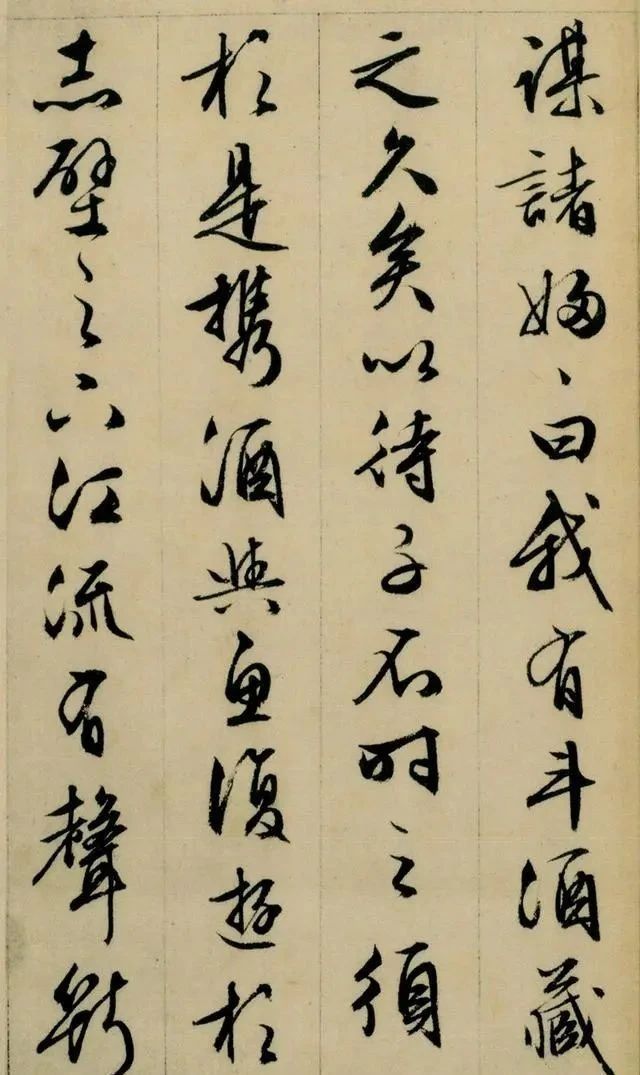 謀諸婦々曰我有斗酒藏
之久矣以待子不時之須
於是攜酒與魚復遊於
赤壁之下江流有聲斷